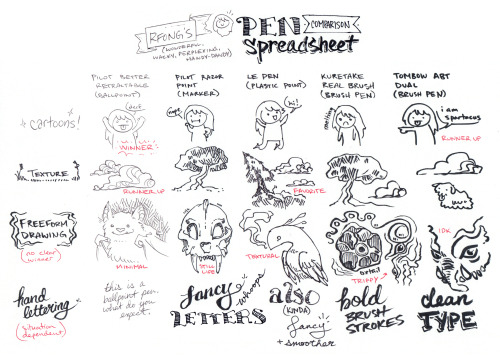 RFONG'S
(WONDERFUL,
WACKY, PERPLEXING,
HANDY-DANDY)
PEN COMPARISON
Spreadsheet
PILOT BETTER
RETRACTABLE
(BALLPOINT)
PILOT RAZOR
POINT
(MARKER)
LE PEN
(PLASTIC POINT)
KURETAKE
REAL BRUSH
(BRUSH PEN)
TOMBOW ABT
DUAL
(BRUSH PEN)
cartoons!
WINNER
hi!
i am
spartacus
RUNNER UP
TEXTURE
RUNNER UP
FAVORITE
FREEFORM
DRAWING
(no clear
winner)
MINIMAL
STILL
LIFE
TEXTURAL
TRIPPY
IDK
hand
lettering
(situation
dependent)
this is a
ballpoint pen
what do you
expect.
fancy
whoops
LETTERS
also
(KINDA)
fancy
+ smoother
bold
BRUSH
STROKES
clean
TYPE